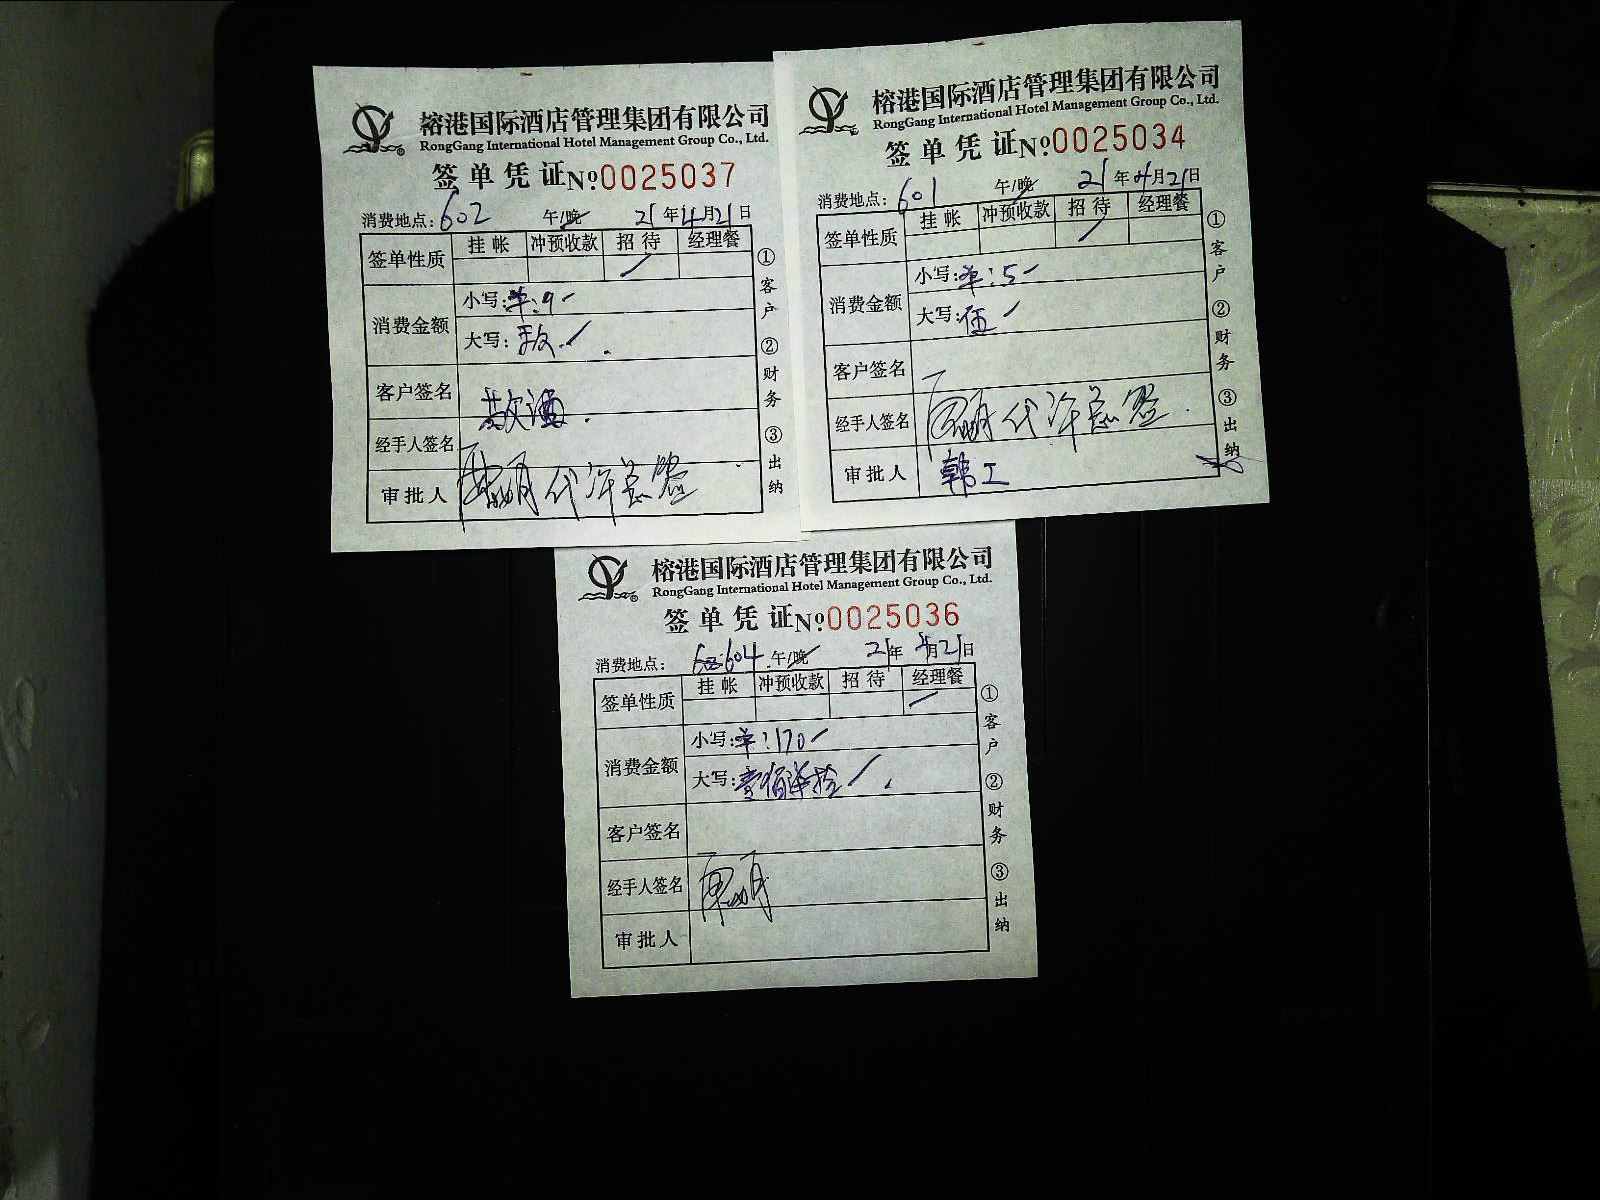 榕港国际酒店管理集团有限公司
RongGang International Hotel Management Group Co., Ltd.
签单凭证№0025037
消费地点:602 午/晚 21年4月21日
签单性质 挂帐 冲预收款 招待 经理餐
消费金额
小写:单:9
大写:玖
客户签名
敬酒
经手人签名
审批人 代许总签
①客户 ②财务 ③出纳
榕港国际酒店管理集团有限公司
RongGang International Hotel Management Group Co., Ltd.
签单凭证№0025034
消费地点:601 午/晚 21年4月21日
签单性质 挂帐 冲预收款 招待 经理餐
消费金额
小写:单:5
大写:伍
客户签名
经手人签名 代许总签
审批人 韩工
①客户 ②财务 ③出纳
榕港国际酒店管理集团有限公司
RongGang International Hotel Management Group Co., Ltd.
签单凭证№0025036
消费地点: 604 午/晚 21年4月21日
签单性质 挂帐 冲预收款 招待 经理餐
消费金额
小写:单:170
大写:壹佰柒拾
客户签名
经手人签名
审批人
①客户 ②财务 ③出纳